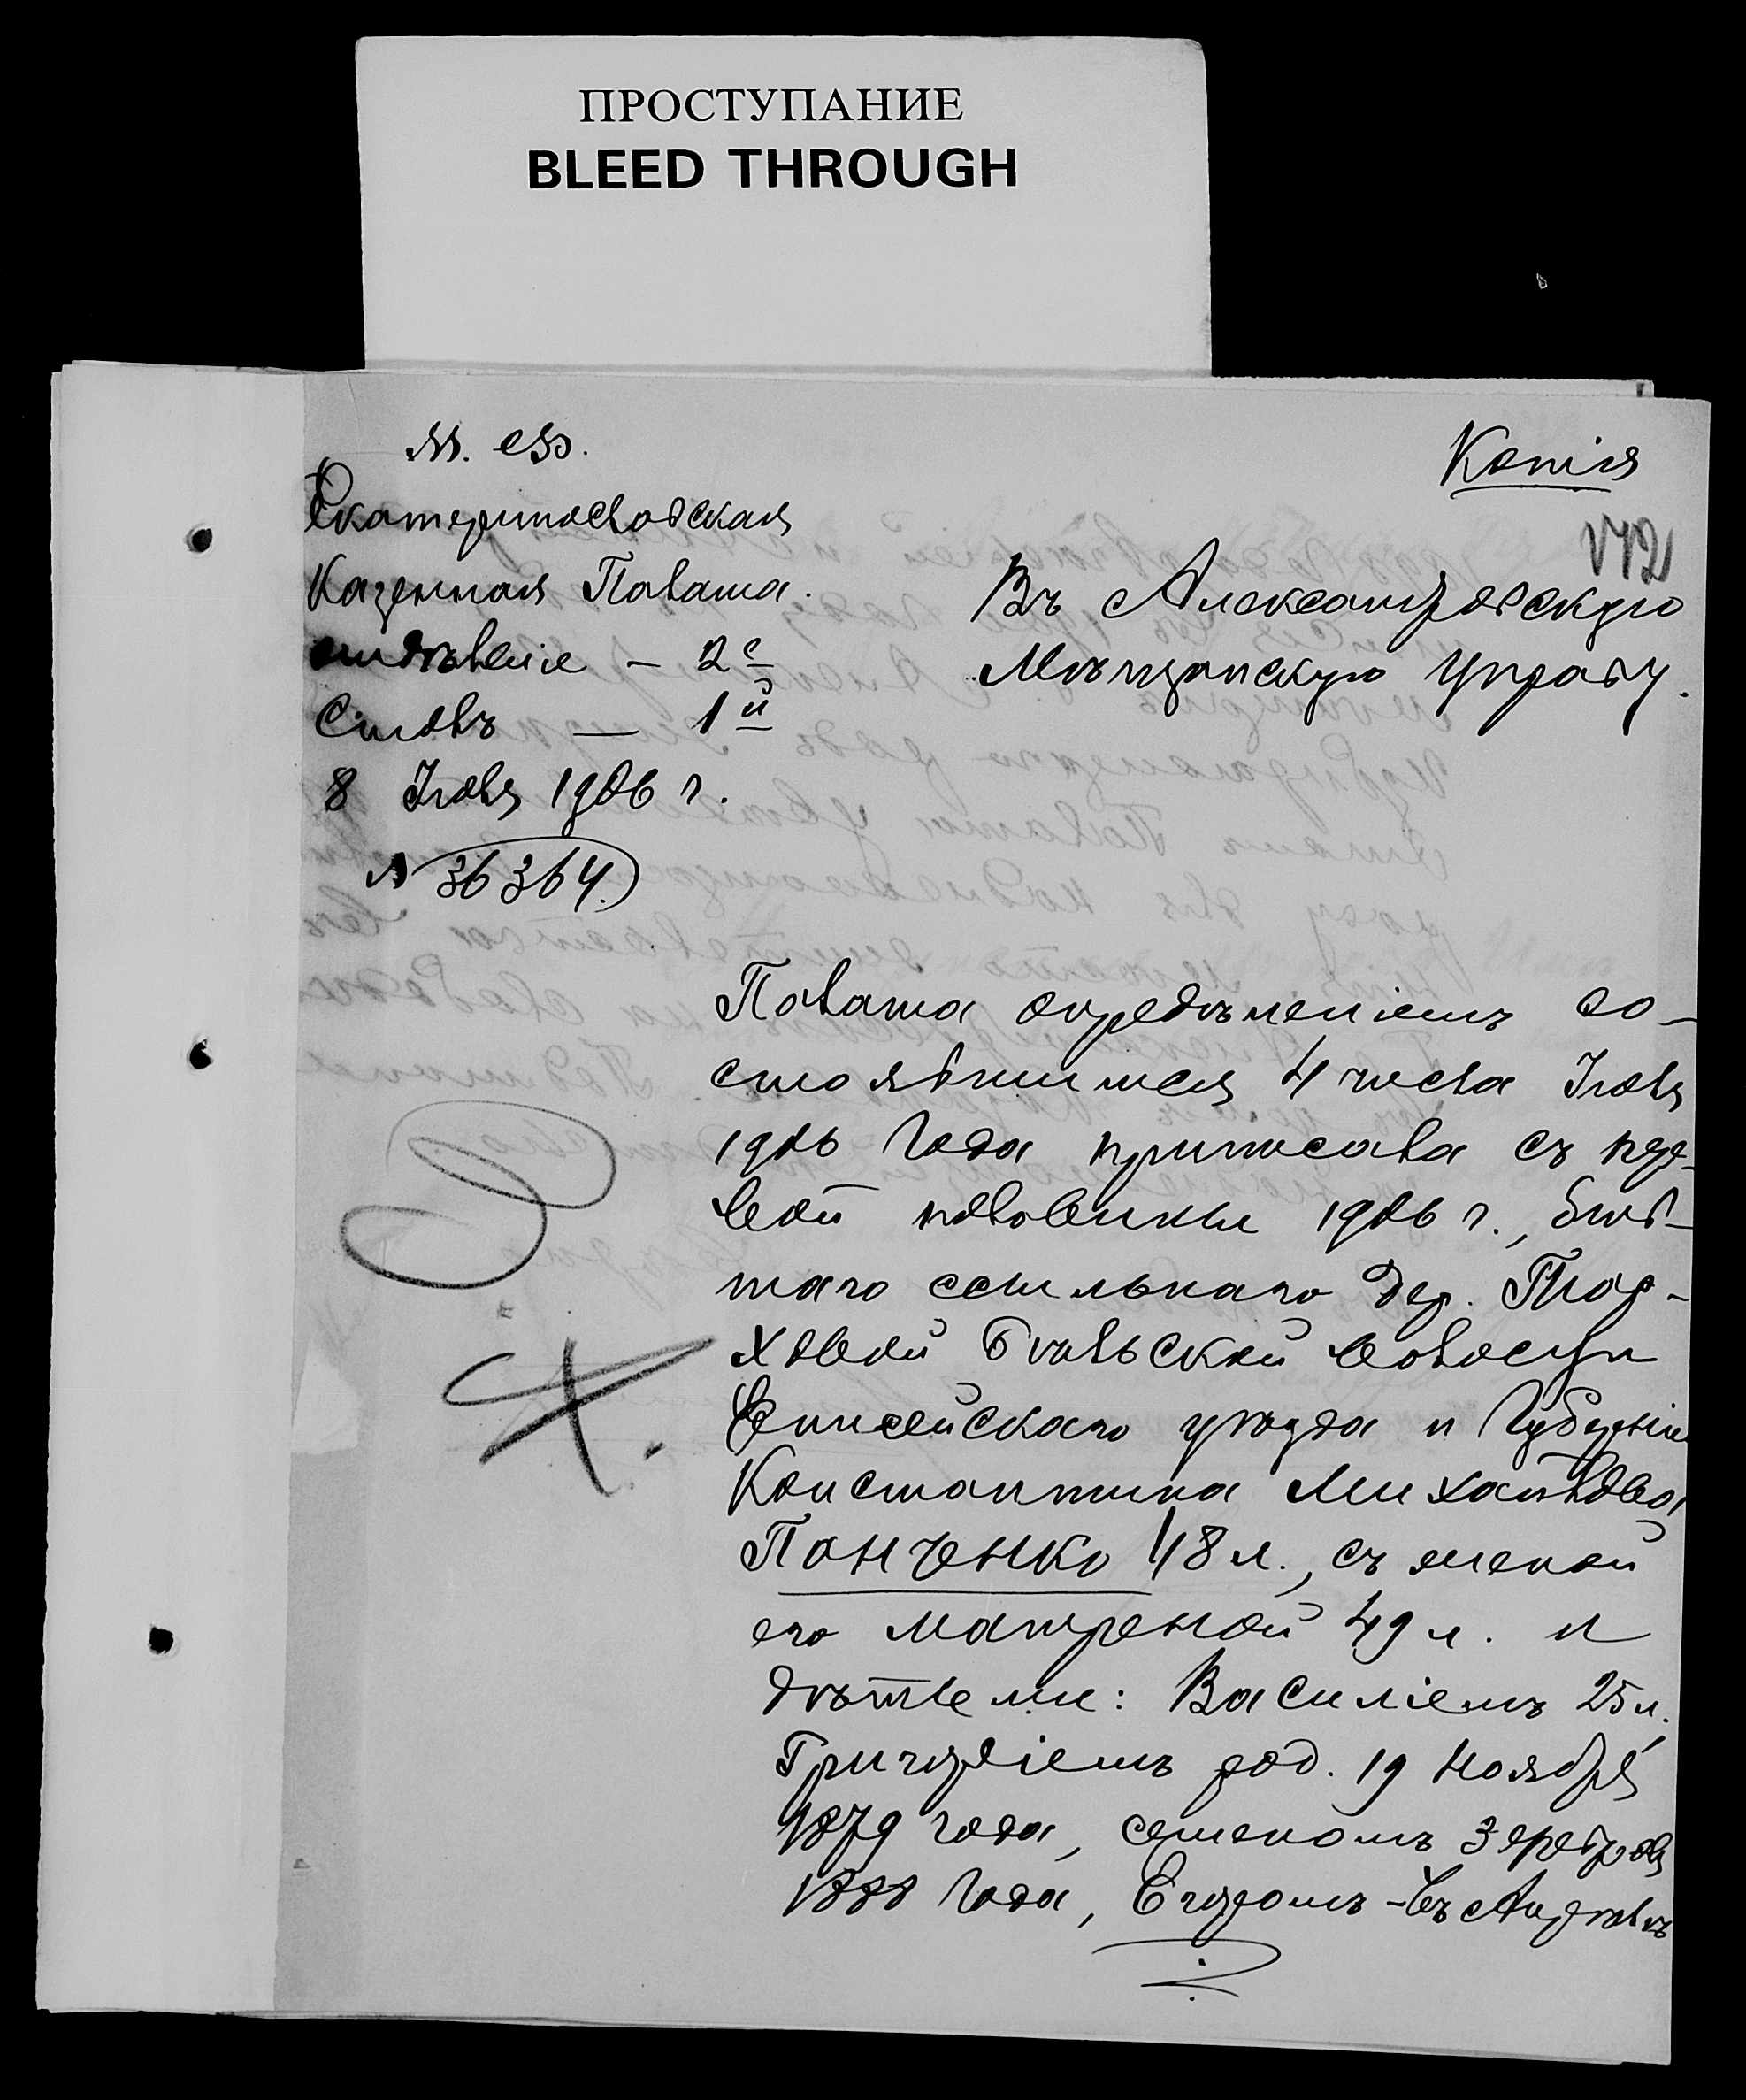 ПРОСТУПАНИЕ
BLEED THROUGH
Копія
172
М. Ф.
Екатеринославская
Казенная Палата.
отдѣленіе – 2е
Столъ — 1й
8 Іюля 1906 г.
№ 36364.
Въ Александровскую
Мѣщанскую Управу.
Палата опредѣленіемъ со-
стоявшимся 4 числа Іюля
1906 года приписала съ пер-
вой половины 1906 г., быв-
шаго ссыльнаго дер.
Бѣльской волости
Енисейскаго уѣзда и Губерніи
Константина Михайлова
Панченко 48 л., съ женой
его Матреной 49 л. и
дѣтьми: Василіемъ 25 л.,
Григоріемъ род. 19 Ноября
1879 года, Семеномъ 3 февраля
1888 года, Егоромъ - 6ъ Апрѣля